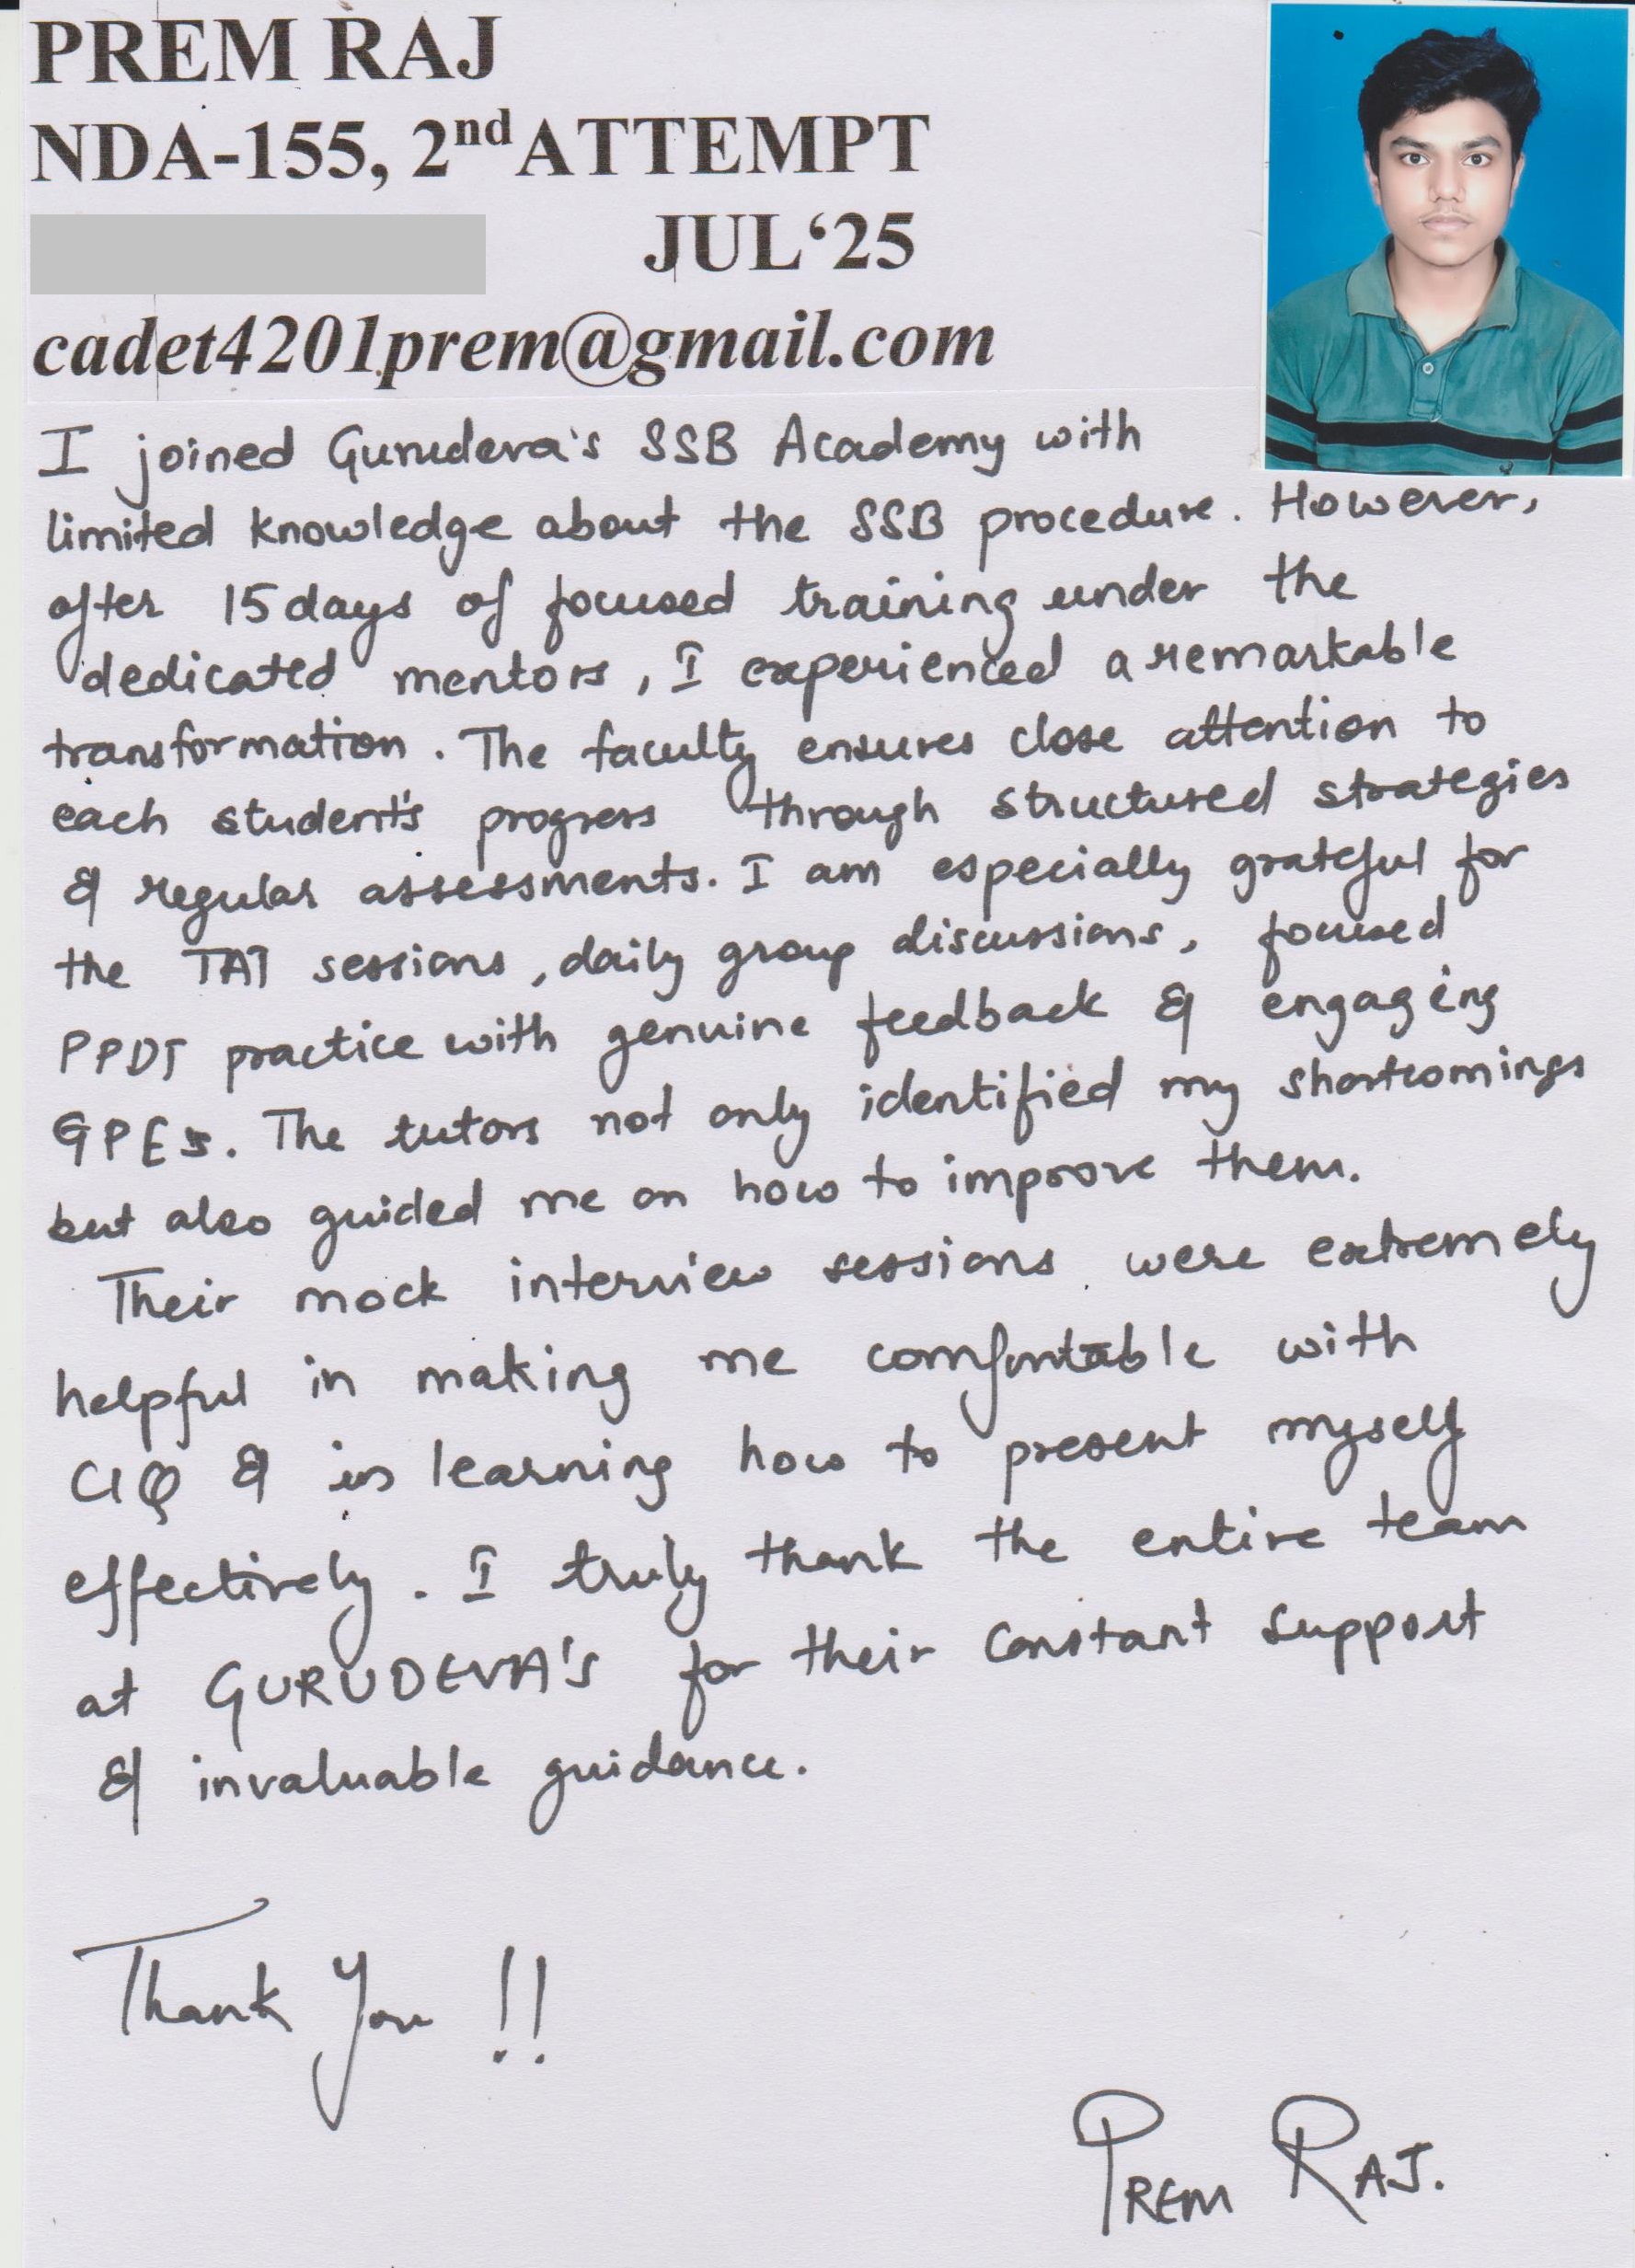 PREM RAJ
NDA-155, 2nd ATTEMPT
JUL‘25
cadet4201prem@gmail.com
I joined Gurudeva's SSB Academy with
limited knowledge about the SSB procedure. However,
after 15 days of focused training under the
dedicated mentors, I experienced a remarkable
transformation. The faculty ensures close attention to
each student's progress through structured strategies
& regular assessments. I am especially grateful for
the TAT sessions, daily group discussions, focused
PPDT practice with genuine feedback & engaging
GPEs. The tutors not only identified my shortcomings
but also guided me on how to improve them.
Their mock interview sessions were extremely
helpful in making me comfortable with
CIQ & in learning how to present myself
effectively. I truly thank the entire team
at GURUDEVA'S for their constant support
& invaluable guidance.
Thank You !!
PREM RAJ.